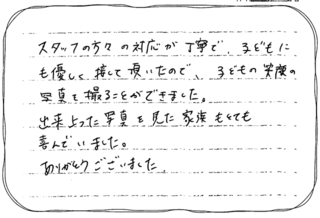 スタッフの方々の対応が丁寧で、子どもに
も優しく接して頂いたので、子どもの笑顔の
写真を撮ることができました。
出来上った写真を見た家族もとても
喜んでいました。
ありがとうございました。